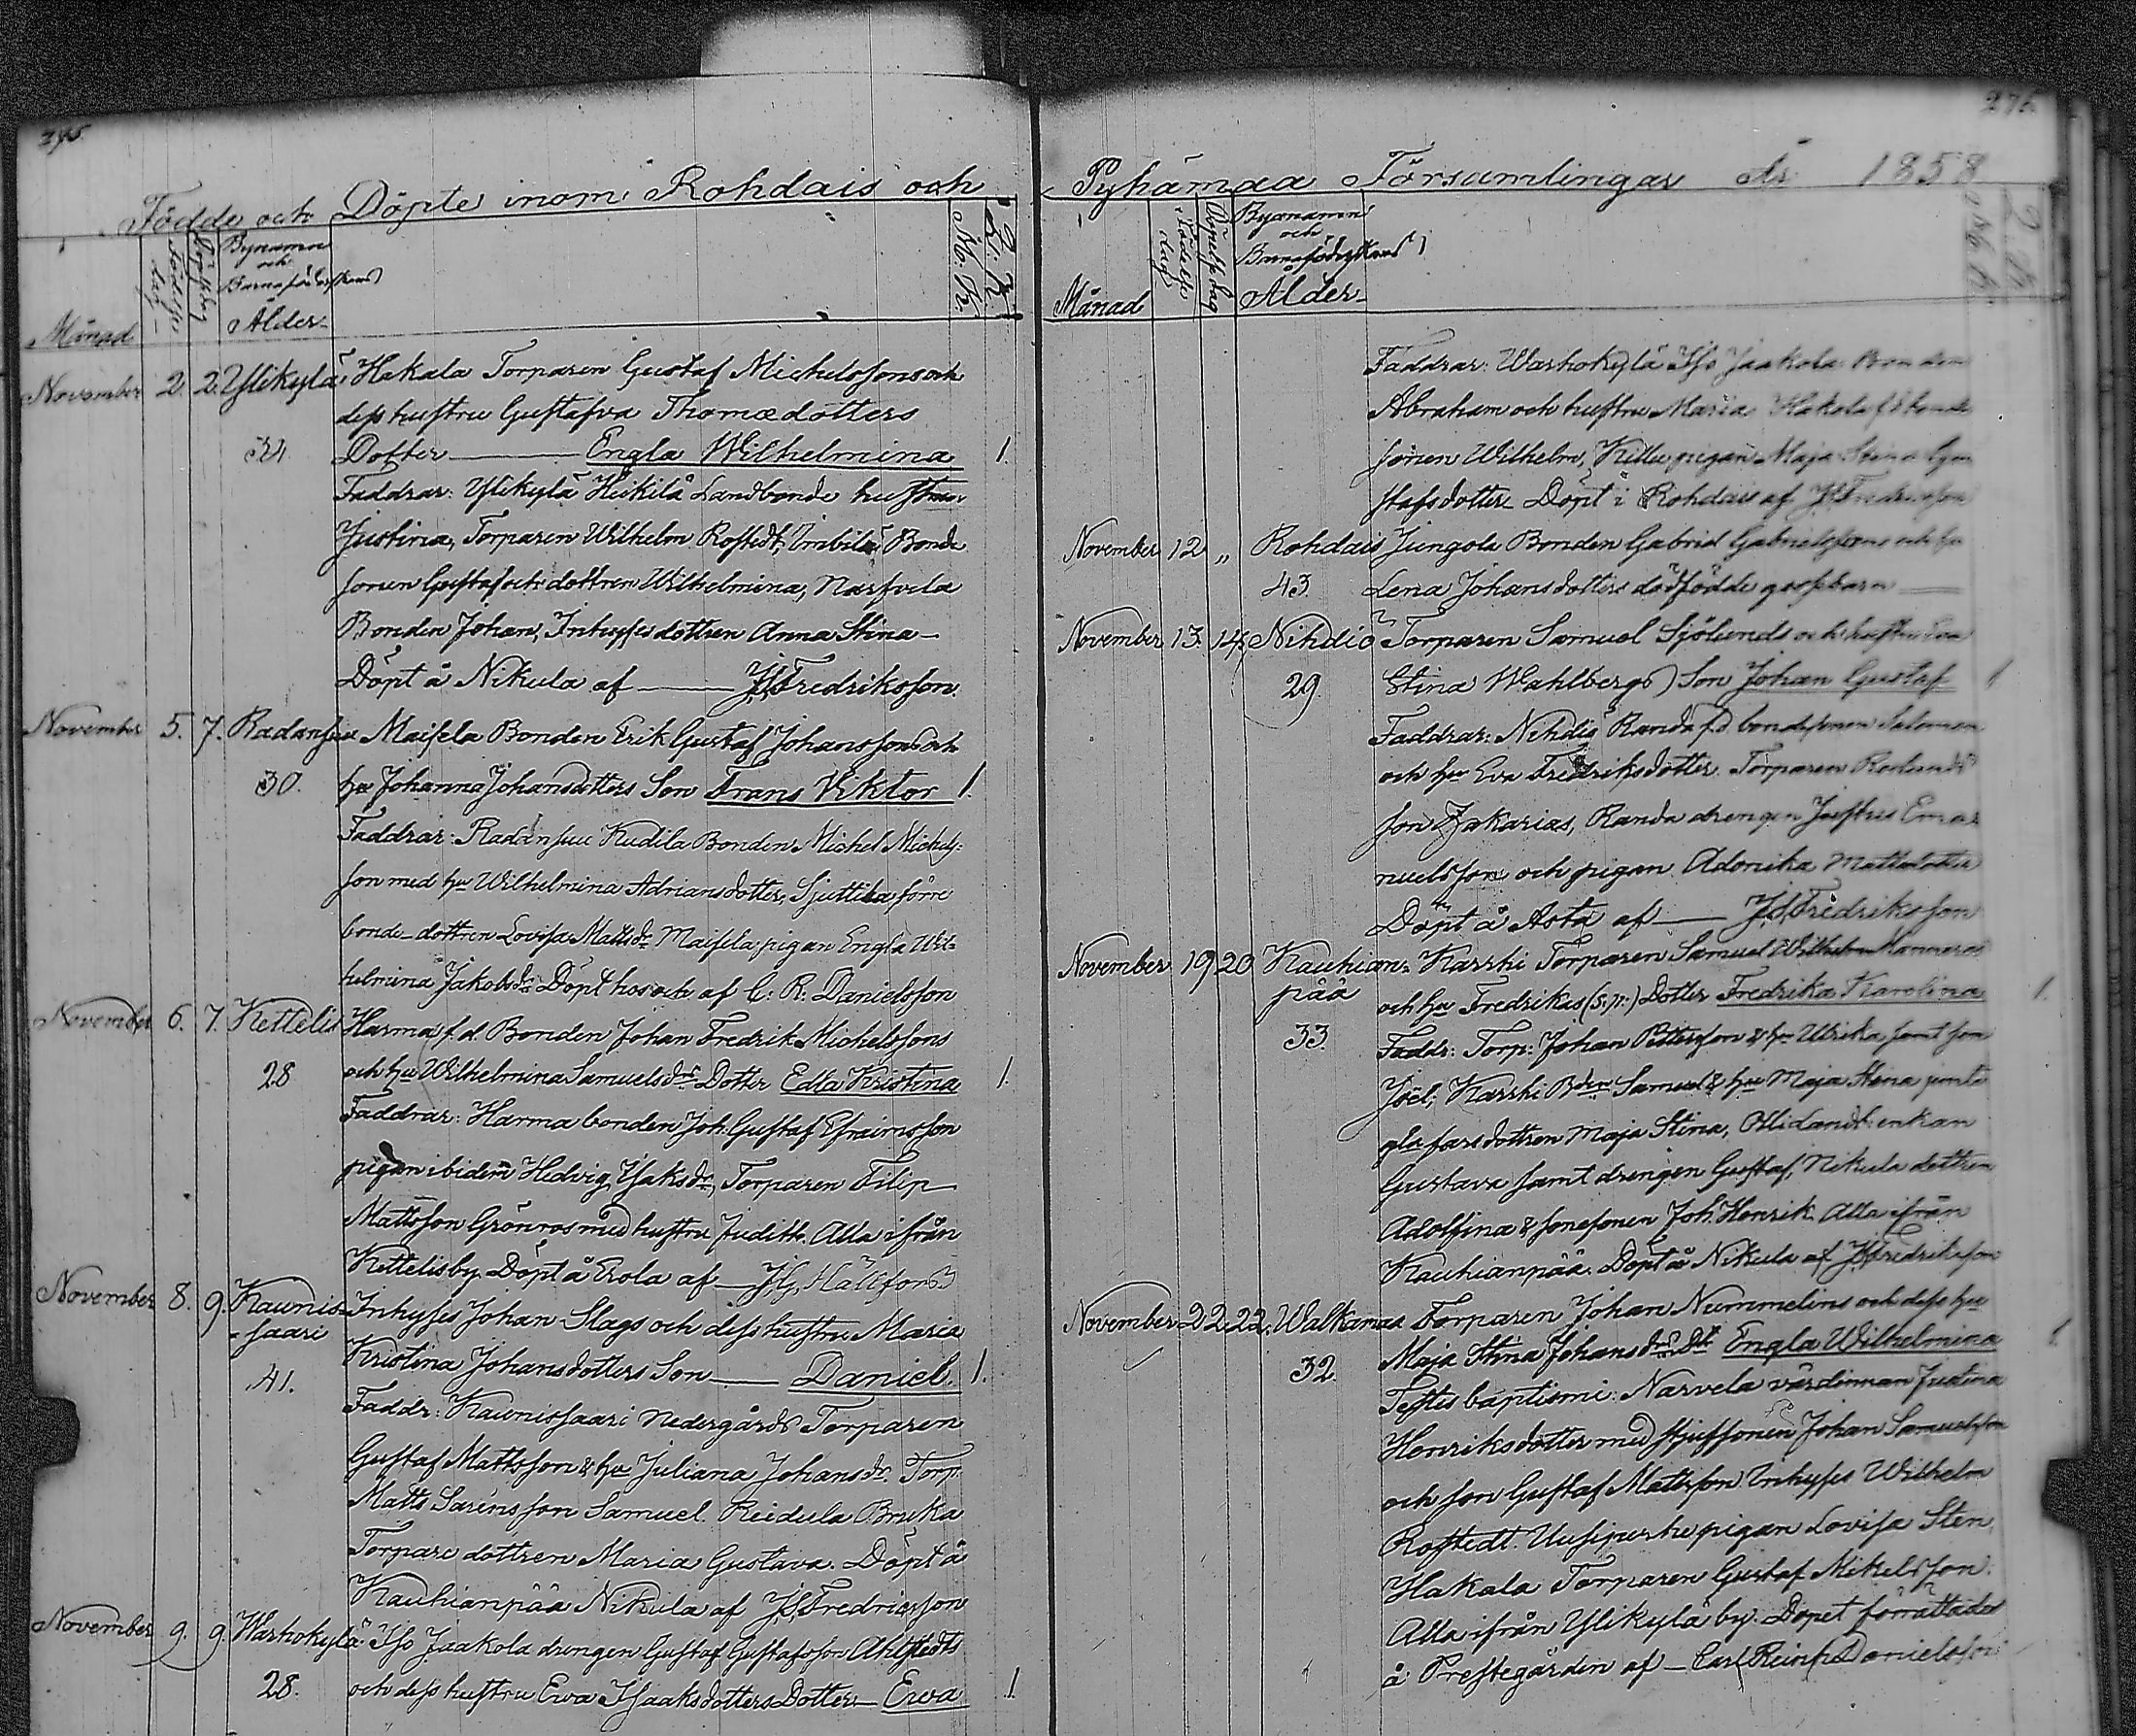 275.
Födde och Döpte inom Rohdais och
Månad
Födelse dag
Döpelsedag
Bynamn
och
Barnaföderskans
Ålder
M. K.
Q. K.
November 2. 2. Ylikylä Hakala Torparen Gustaf Michelssons och
dess hustru Gustafva Thomædotters
34 Dotter — Engla Wilhelmina 1.
Faddrar: Ylikylä Heikilä Landbonde hustrun
Justina, Torparen Wilhelm Rostedt, Imbila Bonde
sonen Gustaf och dottren Wilhelmina, Narfvela
Bonden Johan, Inhyses dottren Anna Stina —
Döpt å Nikula af — J.S. Fredriksson.
November 5. 7. Radansuu Maisela Bonden Erik Gustaf Johanssons och
30. hu Johanna Johansdotters Son Frans Viktor 1.
Faddrar: Radansuu Kudila Bonden Michel Michels-
son med hu Wilhelmina Adriansdotter, Sjuttila förre
bonde-dottren Lovisa Mattsdr Maisela pigan Engla Wil-
helmina Jakobsdr Döpt hos och af C. R. Danielsson
November 6. 7. Kettelis Harma f.d. Bonden Johan Fredrik Michelssons
28 och hu Wilhelmina Samuelsdrs Dotter Edla Kristina 1.
Faddrar: Harma bonden Joh. Gustaf Efraimsson
pigan ibidem Hedvig Isaksdr, Torparen Filip
Mattsson Grönroos med hustru Judith. Alla ifrån
Kettelis by. Döpt å Erola af — J.G. Hällfors
November 8. 9. Kaunis- Inhyses Johan Slags och dess hustru Maria
saari Kristina Johansdotters Son — Daniel. 1.
41. Faddr: Kaunissaari Nedergårds Torparen
Gustaf Mattsson & hu Juliana Johansdr. Torp.
Matts Sarens son Samuel. Reidula Bruka
Torpare dottren Maria Gustava. Döpt å
Kauhianpää Nikula af J.S. Fredriksson
November 9. 9. Warhokylä Iso Jaakola drengen Gustaf Gustafsson Ahlstedts
28. och dess hustru Ewa Isaaksdotters Dotter — Ewa 1
276.
Pyhämaa Församlingar År 1858
Månad
Födelse dag
Döpelsedag
Bynamn
och
Barnaföderskans
Ålder
Faddrar: Warhokylä Iso Jaakola Bonden
Abraham och hustru Maria Hakola f.d. bonde
sonen Wilhelm, pigan Maja Stina Gu-
stafsdotter Döpt i Rohdais af J.S. Fredriksson
November 12 „ Rohdais Jungola Bonden Gabriel Gabrielssons och hu
43. Lena Johansdotters dödfödde gossebarn —
November 13. 14. Nihdiö Torparen Samuel Sjölunds och hustru Eva
29. Stina Wahlbergs) Son Johan Gustaf 1
Faddrar: Nihdiö Randa f.d. bondesonen Salomon
och hu Eva Fredriksdotter. Torparen Roslunds
son Zakarias, Randa drengen Justus Ema-
nuelsson och pigan Adorika Mattsdotter
Döpt å Asta af — J.S. Fredriksson
November 19. 20 Kauhian- Karski Torparen Samuel Wilhelm Manneros
pää och hu Fredrikas (S. n.) Dotter Fredrika Karolina 1.
33. Faddr: Torp: Johan Pettersson & hu Ulrika samt son
Joel; Karski Bden Samuel & hu Maja Stina jemte
gla farsdottren Maja Stina, enkan
Gustava samt drengen Gustaf, Nikula dottren
Adolfina & sonesonen Joh. Henrik. Alla ifrån
Kauhianpää. Döpt å Nikula af J.S. Fredriksson
November 22. 22. Walkamaa Torparen Johan Nummelins och dess hu
32. Maja Stina Johansdrs Dtr Engla Wilhelmina 1
Testis baptismi: Narvela värdinnan Justina
Henriksdotter med stjufsonen Johan Samuelsson
och son Gustaf Mattsson Inhyses Wilhelm
Rostedt. Uusipertu pigan Lovisa Sten,
Hakala Torparen Gustaf Mikelsson.
Alla ifrån Ylikylä by. Dopet förrättades
å Prestegården af — Carl Reinh. Danielsson